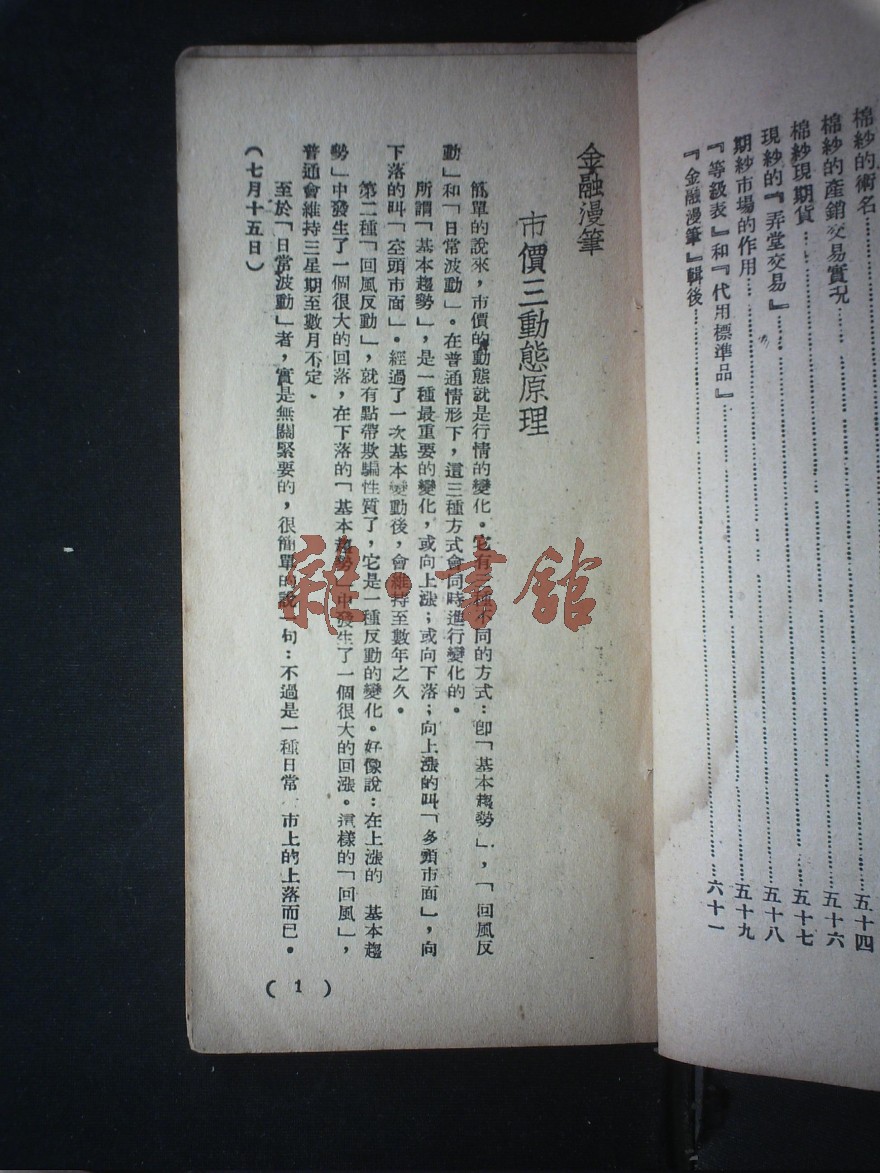 棉紗的術名……五十四
棉紗的產銷交易實況……五十六
棉紗現期貨……五十七
現紗的『弄堂交易』……五十八
期紗市場的作用……五十九
『等級表』和『代用標準品』……
『金融漫筆』輯後……六十一
金融漫筆
市價三動態原理
簡單的說來，市價的動態就是行情的變化。它有三種不同的方式：卽「基本趨勢」，「回風反
動」和「日常波動」。在普通情形下，這三種方式會同時進行變化的。
所謂「基本趨勢」，是一種最重要的變化，或向上漲；或向下落；向上漲的叫「多頭市面」，向
下落的叫「空頭市面」。經過了一次基本變動後，會維持至數年之久。
第二種「回風反動」，就有點帶欺騙性質了，它是一種反動的變化。好像說：在上漲的 基本趨
勢」中發生了一個很大的回落，在下落的「基本趨勢」中發生了一個很大的回漲。這樣的「回風」，
普通會維持三星期至數月不定。
至於「日常波動」者，實是無關緊要的，很簡單的說一句：不過是一種日常 市上的上落而已。
（七月十五日）
( 1 )
雜·書館